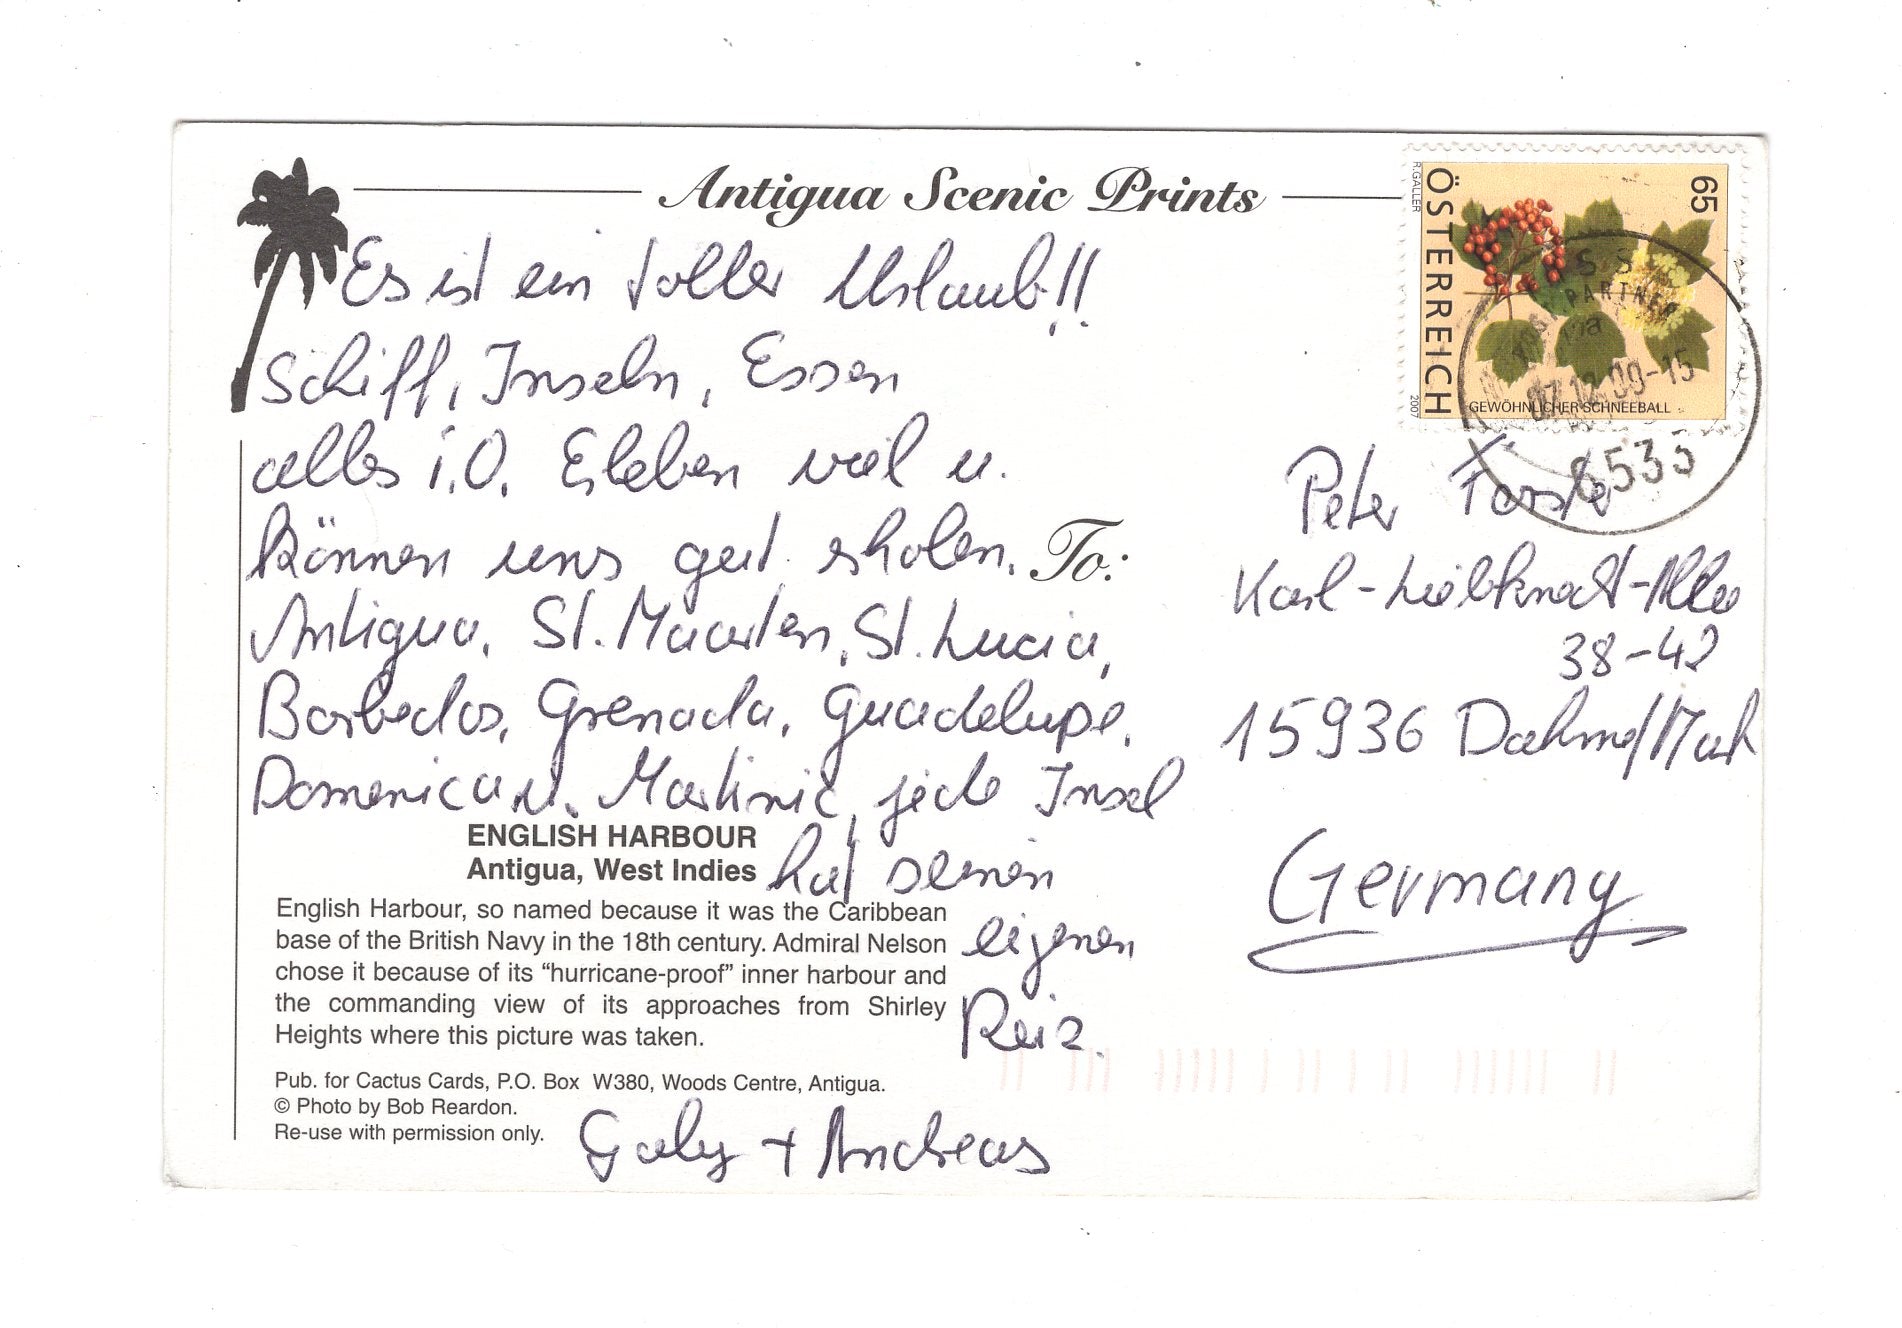 Antigua Scenic Prints
Es ist ein toller Urlaub!!
Schiff, Inseln, Essen
alles i.O. Erleben viel u.
können uns gut erholen.
Antigua, St. Maarten, St. Lucia,
Barbados, Grenada, Guadelupe,
Domenica u. Martinic, jede Insel
hat seinen
eigenen
Reiz.
Gaby + Andreas
ENGLISH HARBOUR
Antigua, West Indies
English Harbour, so named because it was the Caribbean
base of the British Navy in the 18th century. Admiral Nelson
chose it because of its “hurricane-proof” inner harbour and
the commanding view of its approaches from Shirley
Heights where this picture was taken.
Pub. for Cactus Cards, P.O. Box W380, Woods Centre, Antigua.
© Photo by Bob Reardon.
Re-use with permission only.
To:
Peter
Karl-Liebknecht-Allee
38-42
15936 Dahme/Mark
Germany
R.GALLER
ÖSTERREICH
2007
65
GEWÖHNLICHER SCHNEEBALL
PARTNER
07.12.09-15
6533